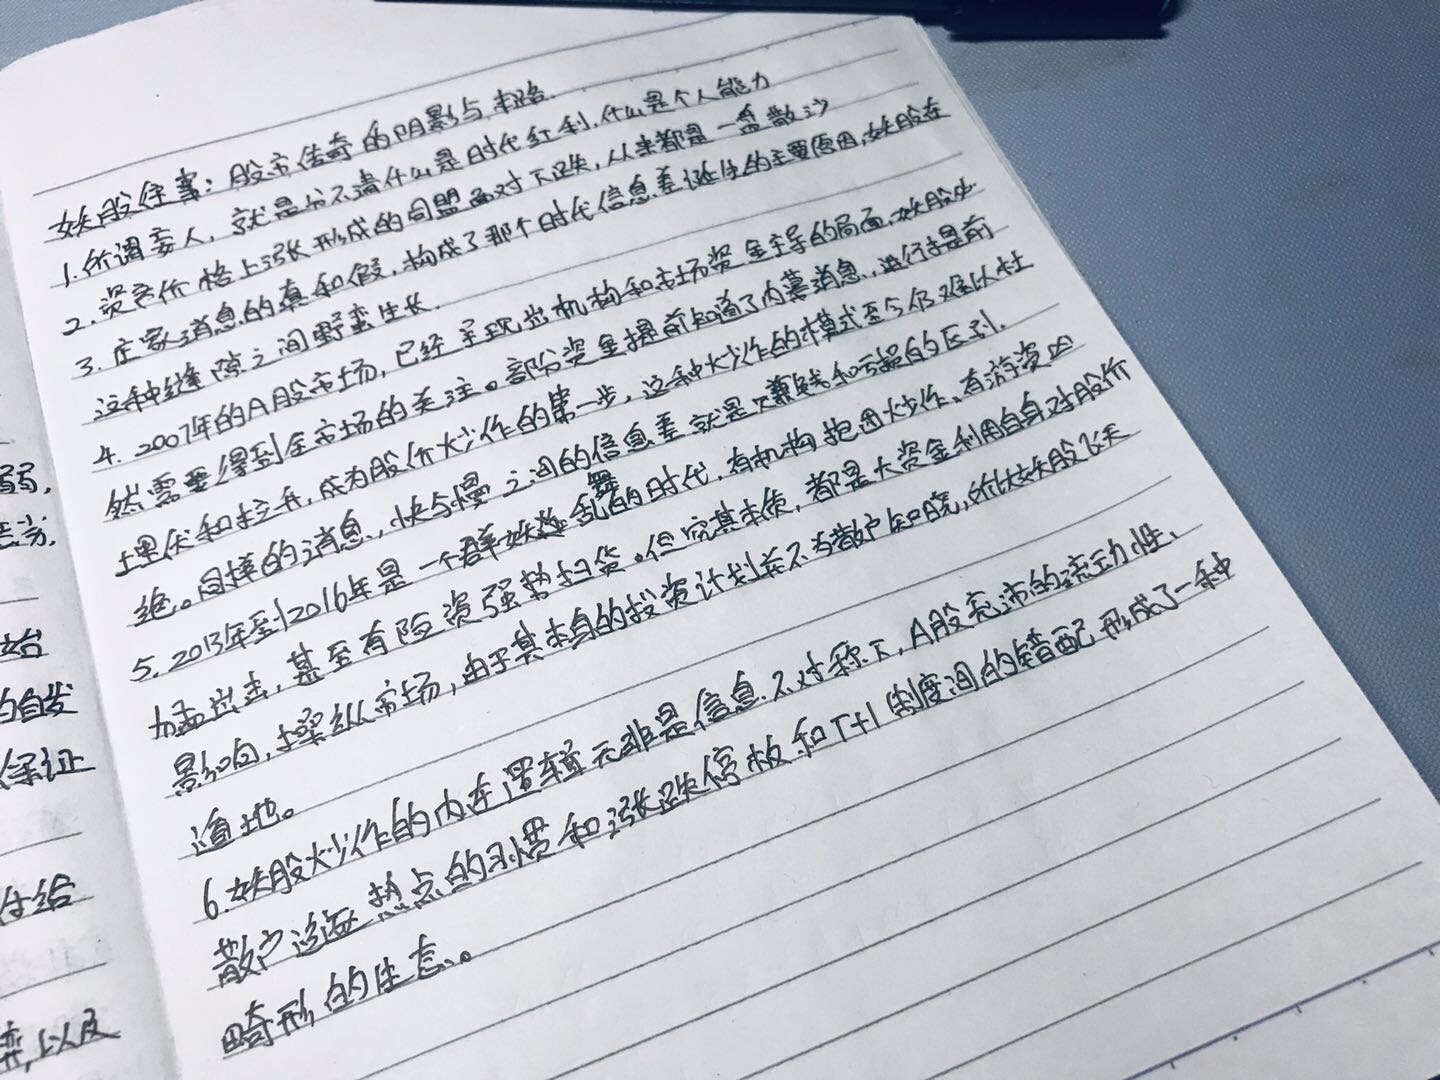 妖股往事：股市传奇的阴影与末路.
1.所谓牵人，就是分不清什么是时代红利，什么是个人能力
2.资产价格上涨形成的同盟面对下跌，从来都是一盘散沙
3.庄家消息的真和假，构成了那个时代信息差诞生的主要原因，妖股在
这种缝隙之间野蛮生长.
4.2007年的A股市场，已经呈现出机构和市场资金主导的局面，妖股必
然需要得到全市场的关注。部份资金提前知道了内幕消息，进行提前
埋伏和拉升，成为股价炒作的第一步，这种炒作的模式至今仍难以杜
绝。同样的消息，快与慢之间的信息差就是赚钱和亏损的区别.
5.2013年到2016年是一个群妖乱舞的时代，有机构抱团炒作、有游资凶
猛出击，甚至有险资强势扫货。但究其本质，都是大资金利用自身对股价
影响，操纵市场，由于其本身的投资计划并不为散户知晓，所以妖股飞天
遁地。
6.妖股炒作的内在逻辑无非是信息不对称下，A股充沛的流动性、
散户追逐热点的习惯和涨跌停板和T+1制度间的错配，形成了一种
畸形的生态。
弱，
始
的自发
保证
给
弈，以及